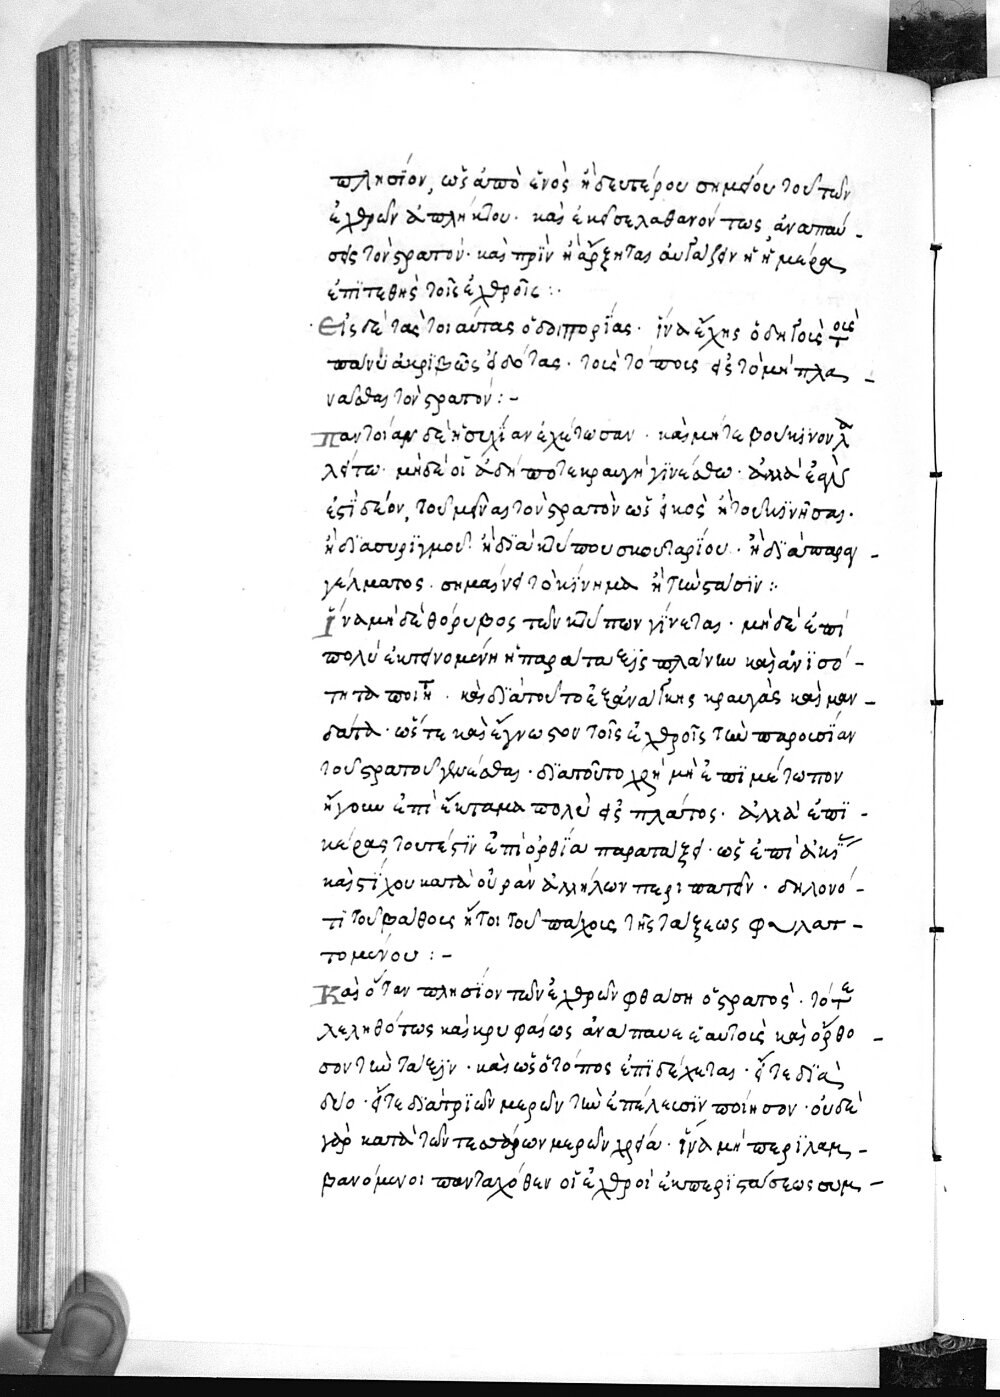 πλησίον, ὡς ἀπὸ ἑνὸς ἢ δευτέρου σημείου τοῦ τῶν
ἐχθρῶν ἀπλήκτου· καὶ ἐκεῖσε λαθανόντως ἀναπαύ-
σεις τὸν στρατόν· καὶ πρὶν ἢ ἄρξηται αὐγάζειν ἡ ἡμέρα,
ἐπιτεθῇς τοῖς ἐχθροῖς:·
Εἰς δὲ τὰς τοιαύτας ὁδοιπορίας· ἵνα ἔχῃς ὁδηγοὺς τοὺς
πάνυ ἀκριβῶς εἰδότας· τοὺς τόπους εἰς τὸ μὴ πλα-
νᾶσθαι τὸν στρατόν:-
Παντοίαν δὲ ἡσυχίαν ἐχέτωσαν· καὶ μήτε βούκινον λα-
λείτω· μηδὲ οἱαδήποτε κραυγὴ γινέσθω· ἀλλὰ ἐφ' ὅσον
ἐστὶ δέον, τοῦ μεῖναι τὸν στρατὸν ὡς εἰκὸς ἢ τοῦ κινῆσαι·
ἢ διὰ συριγμοῦ· ἢ διὰ κτύπου σκουταρίου· ἢ διὰ παραγ-
γέλματος· σημαίνει τὸ κίνημα ἢ τὴν στάσιν:·
Ἵνα μὴ δὲ θόρυβος τῶν κτύπων γίνεται· μηδὲ ἐπὶ
πολὺ ἐκτεινομένη ἡ παράταξις πλάνην καὶ ἀνισό-
τητα ποιῇ· καὶ διὰ τοῦτο ἐξ ἀνάγκης κραυγὰς καὶ μαν-
δάτα· ὥστε καὶ ἔγνωσον τοῖς ἐχθροῖς τὴν παρουσίαν
τοῦ στρατοῦ γενέσθαι· διὰ τοῦτο χρὴ μὴ ἐπὶ μέτωπον
ἤγουν ἐπὶ ἔκταμα πολὺ εἰς πλάτος· ἀλλὰ ἐπὶ
κέρας τουτέστιν ἐπὶ ὀρθίᾳ παρατάξει· ὡς ἐπὶ ἀκίας
καὶ στίχου κατὰ οὐρὰν ἀλλήλων περιπατεῖν· δηλονό-
τι τοῦ βάθους ἤτοι τοῦ πάχους τῆς τάξεως φυλατ-
τομένου:-
Καὶ ὅταν πλησίον τῶν ἐχθρῶν φθάσῃ ὁ στρατός· τότε
λεληθότως καὶ κρυφαίως ἀνάπαυε ἑαυτοὺς καὶ ὄρθο-
σον τὴν τάξιν· καὶ ὡς ὁ τόπος ἐπιδέχεται· εἴτε διὰ
δύο· εἴτε διὰ τριῶν μερῶν τὴν ἐπέλευσιν ποίησον· οὐδὲ
γὰρ κατὰ τῶν τεσσάρων μερῶν χρεία· ἵνα μὴ περιλαμ-
βανόμενοι πανταχόθεν οἱ ἐχθροὶ ἐκ περιστάσεως συμ-